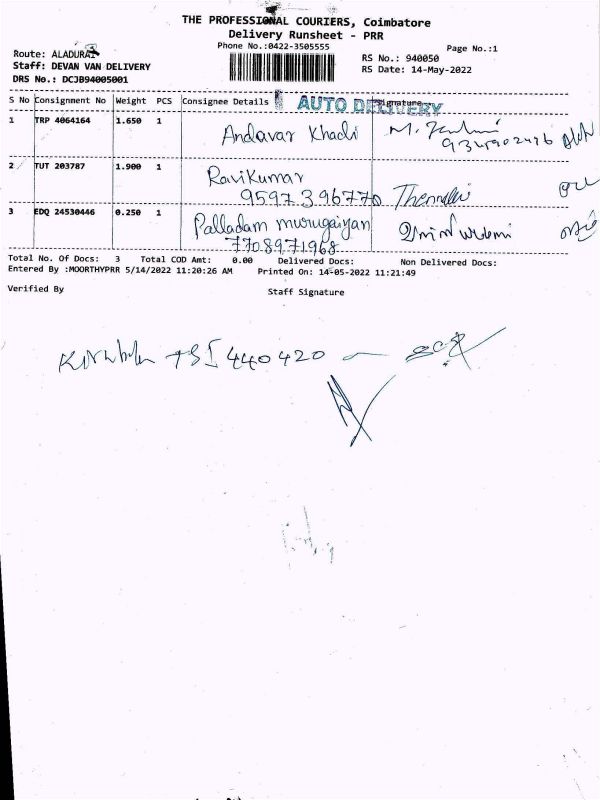 THE PROFESSIONAL COURIERS, Coimbatore
Delivery Runsheet - PRR
Phone No.:0422-3505555
Page No.:1
Route: ALADURAI
Staff: DEVAN VAN DELIVERY
DRS No.: DCJB94005001
RS No.: 940050
RS Date: 14-May-2022
S No Consignment No Weight PCS Consignee Details AUTO DELIVERY Signature
1 TRP 4064164 1.650 1 Andavar Khadi
2 TUT 203787 1.900 1 RaviKumar
9597396770
3 EDQ 24530446 0.250 1 Palladam murugaiyan
7708971968
Total No. Of Docs: 3 Total COD Amt: 0.00 Delivered Docs: Non Delivered Docs:
Entered By :MOORTHYPRR 5/14/2022 11:20:26 AM Printed On: 14-05-2022 11:21:49
Verified By Staff Signature
440420